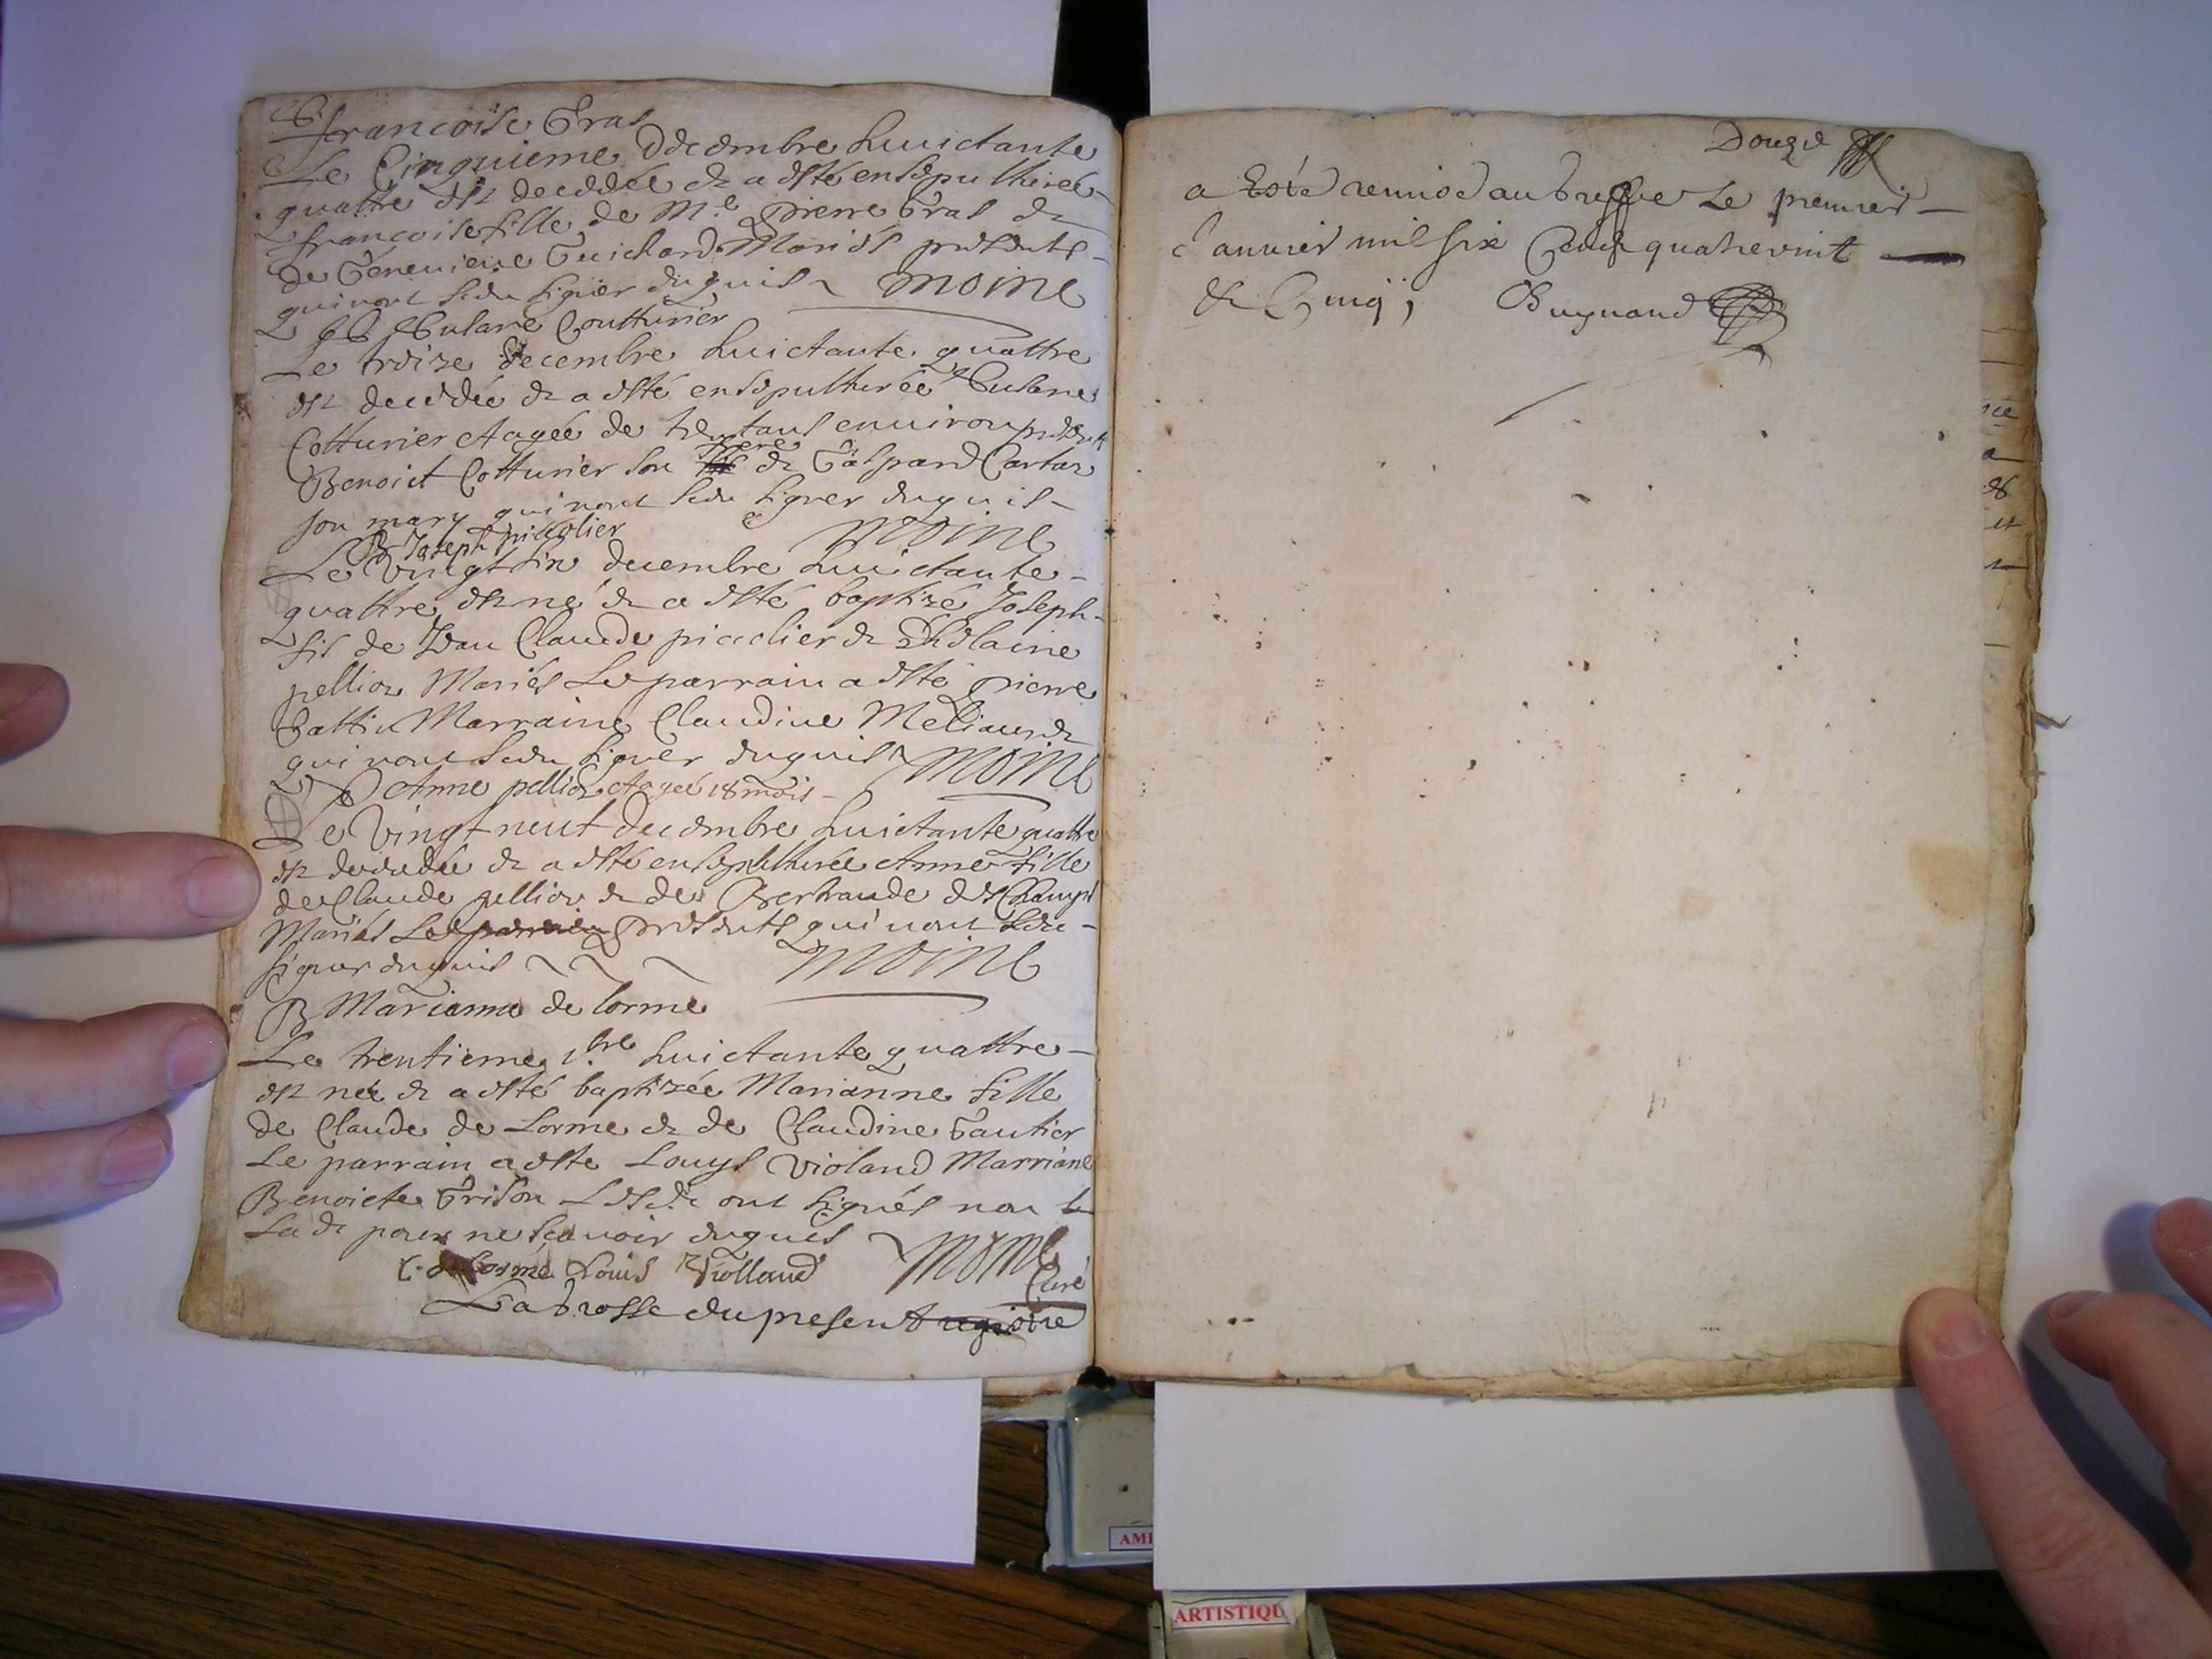 francoise Gras
Le Cinquieme decembre huictante
quattre est decedée & a esté ensepulthurée
francoise fille de Me pierre Gras &
de Genevieve Guichard Mariés presents
qui nont sceu signer enquis moine
Eulane Coutturier
Le treize decembre huictante quattre
est decedée & a esté ensepulthurée Eulane
Cotturier Aagée de trentans environ presents
Benoict Cotturier son frere & Gaspard Cartaz
son mary qui nont sceu signer enquis
B Joseph picolier moine
Le Vingt six decembre huictante
quattre est né & a esté baptizé Joseph
fis de Jean Claude picolier &
pellion Mariés Le parrain a esté pierre
Gattin Marraine Claudine
qui nont sceu signer enquis moine
Anne pellion Aagée 18 mois
Le Vingt neuf decembre huictante quattre
est decedée & a esté ensepulthurée Anne fille
de Claude pellion & de Bertrande deschamps
Mariés Le parrain presents qui nont sceu
signer enquis moine
B Marianne de lorme
Le trentieme xbre huictante quattre
est née & a esté baptizée Marianne fille
de Claude de Lorme & de Claudine Gautier
Le parrain a esté Louys Violand Marriane
Benoicte Grison Lesd. ont signés non la
lade pour ne scavoir enquis moine
C. de Lorme Louis Violland Curé
La grosse du present registre
Douze
a Esté remise au Greffe Le premier
Janvier mil six Cents quatrevint
& Cinq, Buynand
ARTISTIQU